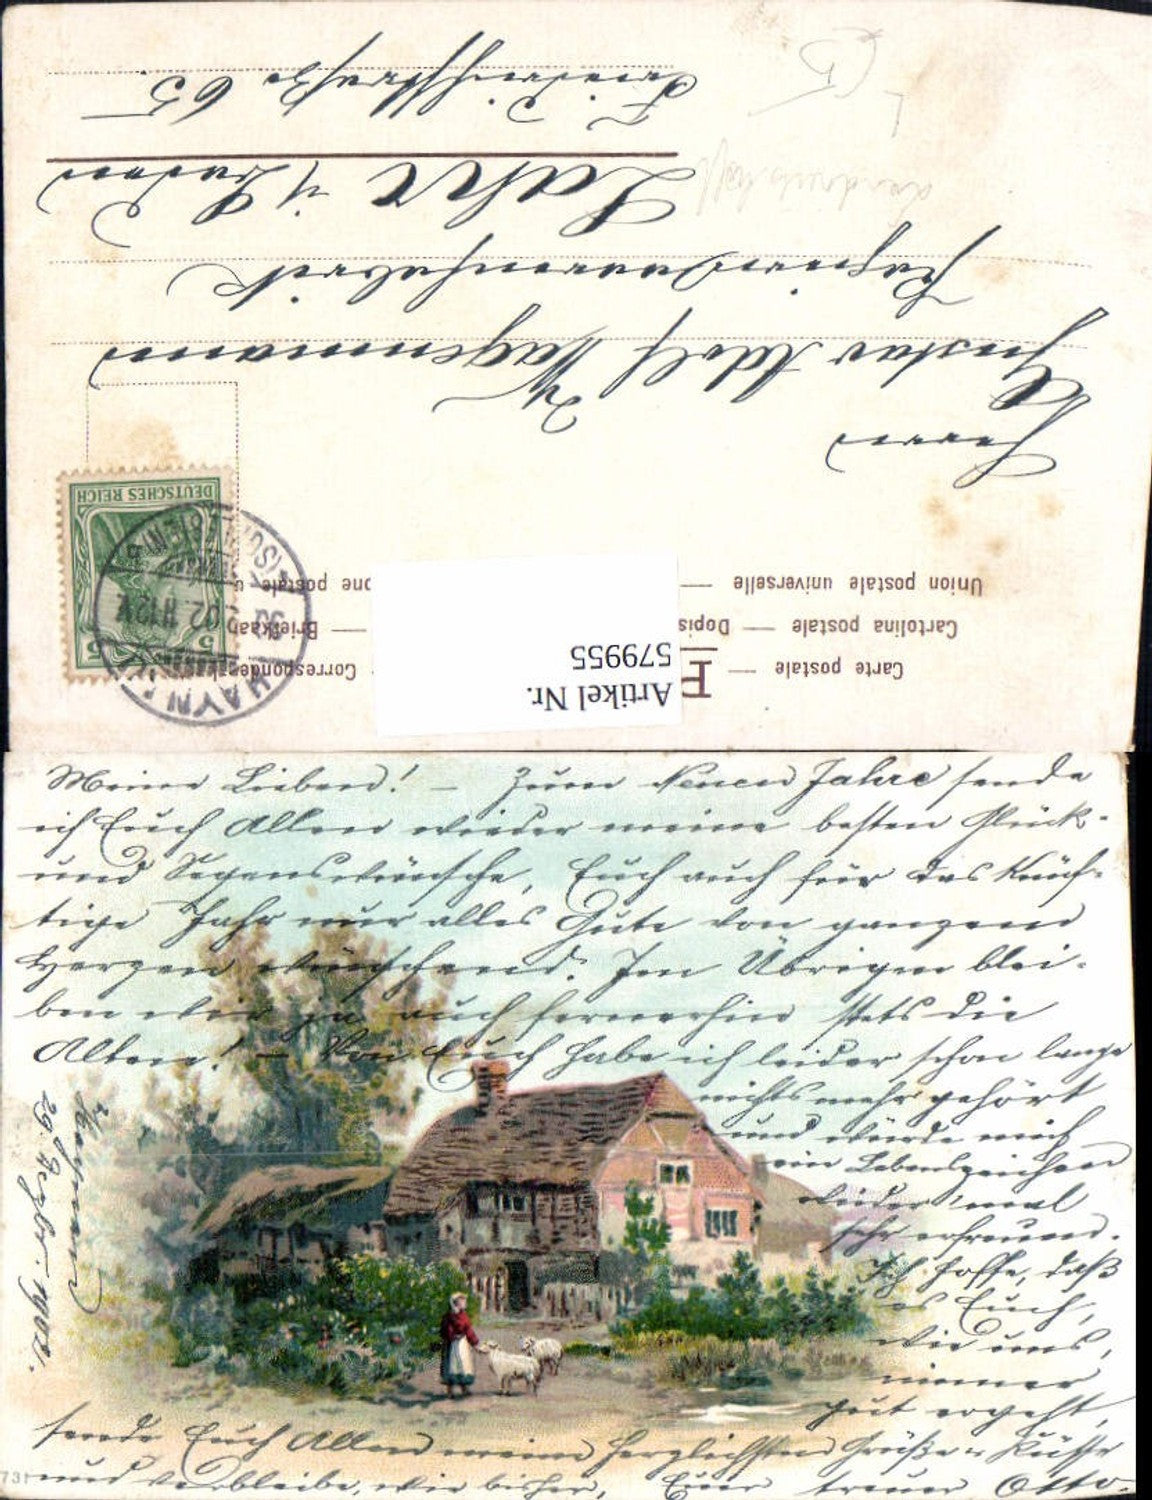 Carte postale — Dopis
Correspondenzkarte
Cartolina postale —
— Briefkaart
Union postale universelle —
Artikel Nr.
579955
DEUTSCHES REICH
5 5
HAYNAU
30 02. 11-12 V.
(SCHLESIEN)
Herrn
Gustav Adolf Wagenmann
Lahr i/Baden
Friedrichstraße 65.
Meine Lieben! — Zum Neuen Jahre sende
ich Euch Allen wieder meine besten Glück-
und Segenswünsche, Euch auch für das Künf-
tige Jahr nur alles Gute von ganzem
Herzen wünschend. Im Übrigen blei-
ben wir ja auch fernerhin stets die
Alten! — Von Euch habe ich leider schon lange
nichts mehr gehört
und würde mich
ein Lebenszeichen
wieder 'mal
sehr erfreuen.
Ich hoffe, daß
es Euch,
wie uns,
immer
gut ergeht,
sende Euch Allen meine herzlichsten Grüße u. Küsse
und verbleibe, wie bisher, Euer treuer Otto.
Haynau
29. Dezbr. 1902.
731